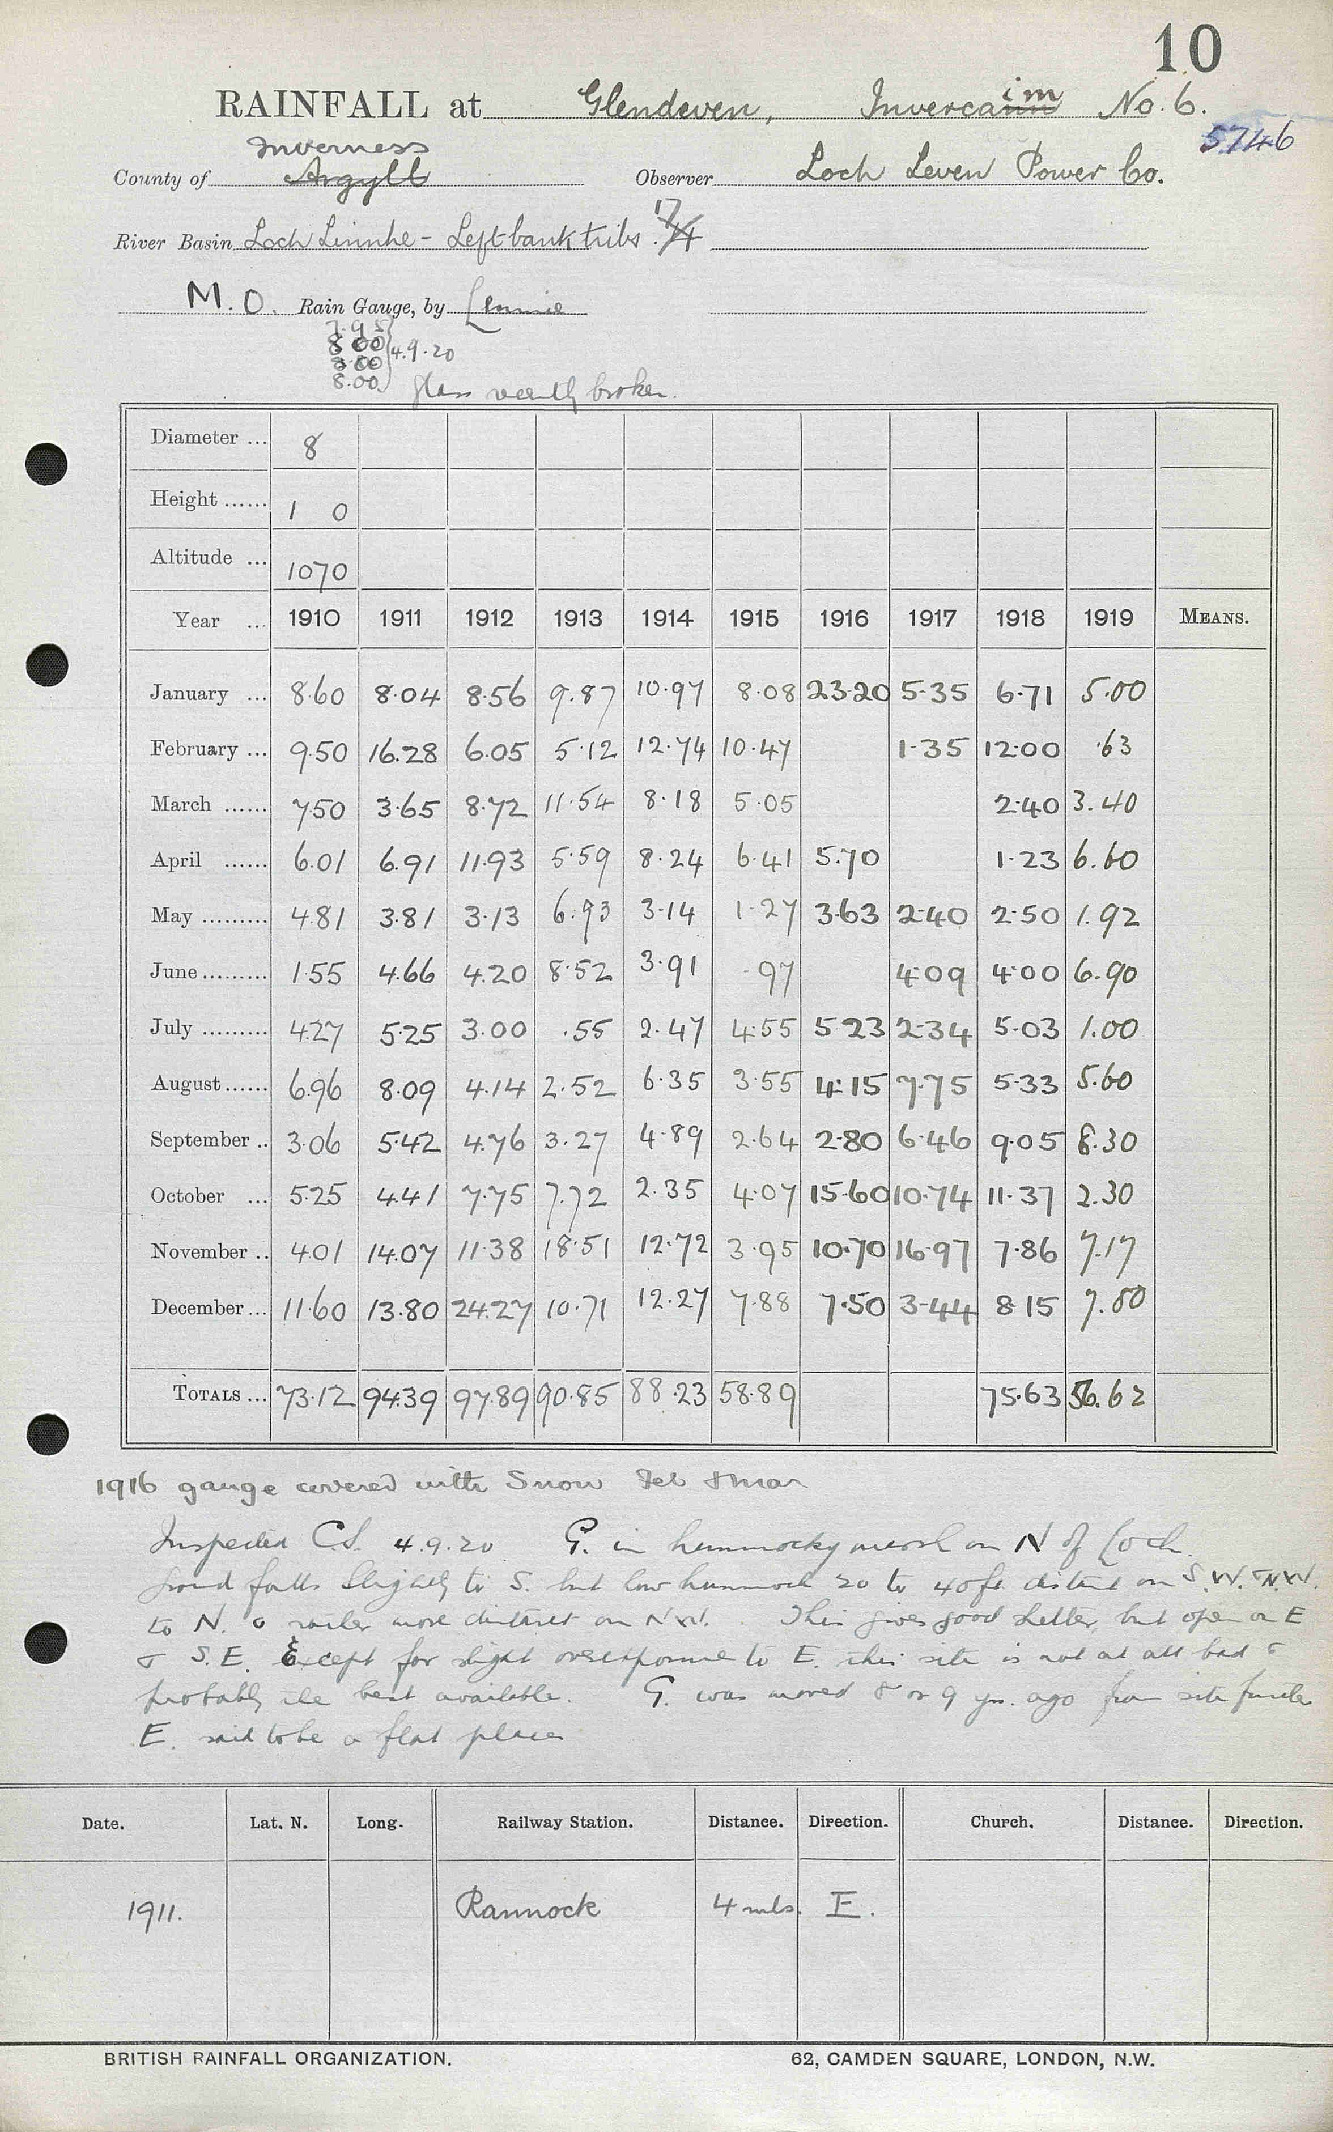 10
RAINFALL at Glendeven, Invercaim No. 6.
5746
Inverness
County of Argyll Observer Loch Leven Power Co.
River Basin Loch Linnhe - Left bank tribs. 17/4
M.O. Rain Gauge, by Lennie
7.95
8.00
8.00
8.00 } 4.9.20
glass recently broken.
Diameter ... 8
Height ...... 1 0
Altitude ... 1070
Year ... 1910 1911 1912 1913 1914 1915 1916 1917 1918 1919 MEANS.
January ... 8.60 8.04 8.56 9.87 10.97 8.08 23.20 5.35 6.71 5.00
February ... 9.50 16.28 6.05 5.12 12.74 10.47 1.35 12.00 .63
March ...... 7.50 3.65 8.72 11.54 8.18 5.05 2.40 3.40
April ...... 6.01 6.91 11.93 5.59 8.24 6.41 5.70 1.23 6.60
May ......... 4.81 3.81 3.13 6.93 3.14 1.27 3.63 2.40 2.50 1.92
June ......... 1.55 4.66 4.20 8.52 3.91 .97 4.09 4.00 6.90
July ......... 4.27 5.25 3.00 .55 2.47 4.55 5.23 2.34 5.03 1.00
August ...... 6.96 8.09 4.14 2.52 6.35 3.55 4.15 7.75 5.33 5.60
September .. 3.06 5.42 4.76 3.27 4.89 2.64 2.80 6.46 9.05 8.30
October ... 5.25 4.41 7.75 7.72 2.35 4.07 15.60 10.74 11.37 2.30
November .. 4.01 14.07 11.38 18.51 12.72 3.95 10.70 16.97 7.86 7.17
December ... 11.60 13.80 24.27 10.71 12.27 7.88 7.50 3.44 8.15 7.80
TOTALS ... 73.12 94.39 97.89 90.85 88.23 58.89 75.63 56.62
1916 gauge covered with Snow Feb & Mar
Inspected C.S. 4.9.20 G. in hummocky marsh on N of Loch.
ground falls slightly to S. but low hummock 20 to 40 ft. distant on S.W. & N.W.
to N. & rather more distant on NW. This gives good shelter, but open on E
& S.E. Except for slight overexposure to E. this site is not at all bad &
probably the best available. G. was moved 8 or 9 yrs. ago from site further
E. said to be a flat place
Date. Lat. N. Long. Railway Station. Distance. Direction. Church. Distance. Direction.
1911. Rannock 4 mls. E.
BRITISH RAINFALL ORGANIZATION. 62, CAMDEN SQUARE, LONDON, N.W.